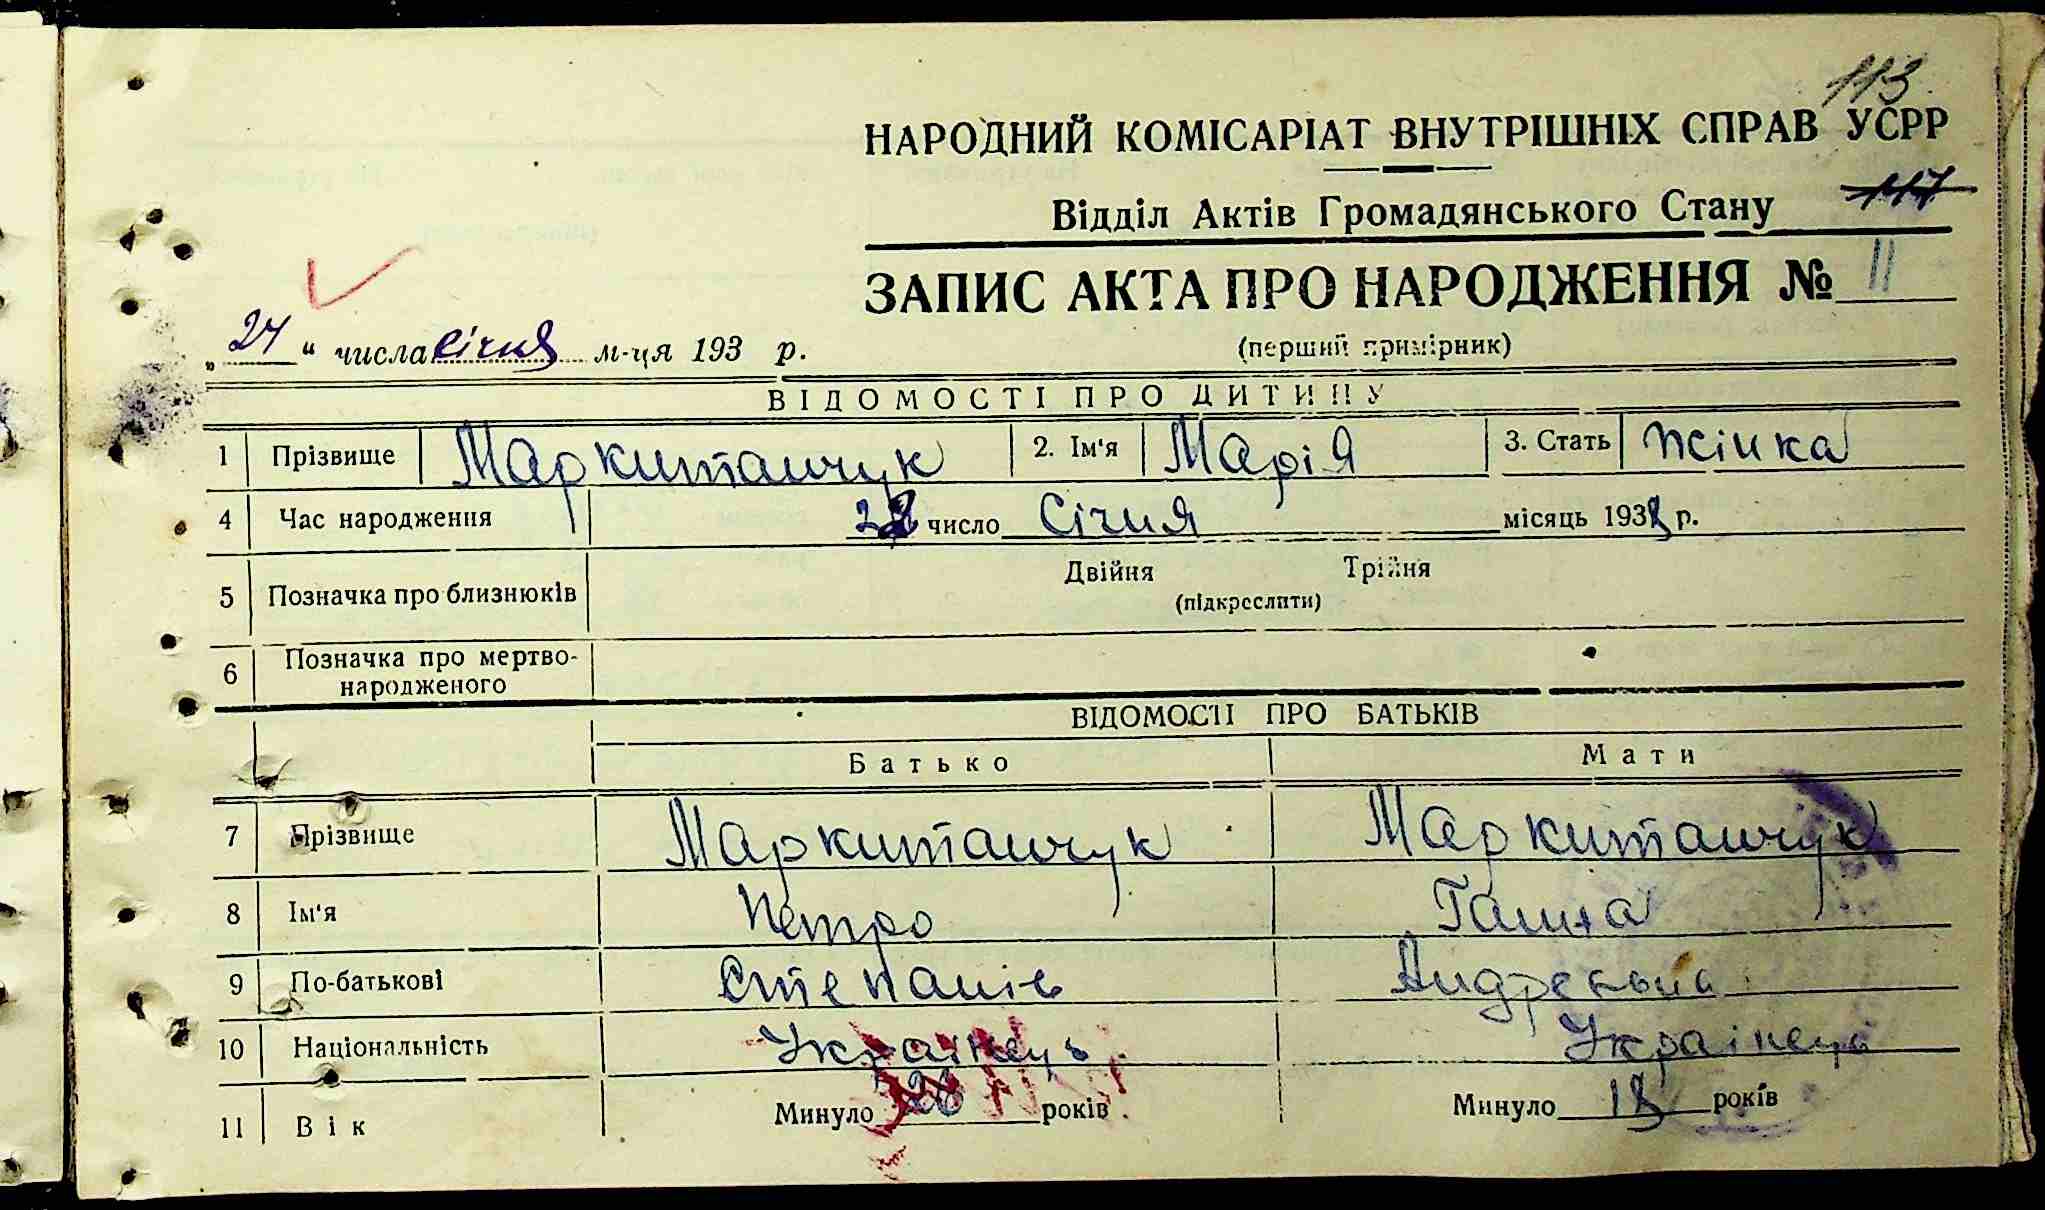 113
НАРОДНИЙ КОМІСАРІАТ ВНУТРІШНІХ СПРАВ УСРР
Відділ Актів Громадянського Стану 117
ЗАПИС АКТА ПРО НАРОДЖЕННЯ № 11
„24“ числа січня м-ця 193 р.
(перший примірник)
ВІДОМОСТІ ПРО ДИТИНУ
1 Прізвище Маркитанчук 2. Ім'я Марія 3. Стать Жінка
4 Час народження число Січня місяць 1938 р.
5 Позначка про близнюків Двійня Трійня
(підкреслити)
6 Позначка про мертво-
народженого
ВІДОМОСТІ ПРО БАТЬКІВ
Батько Мати
7 Прізвище Маркитанчук Маркитанчук
8 Ім'я Петро Ганна
9 По-батькові Степанів Андреевна
10 Національність Українець Українець
11 Вік Минуло 26 років Минуло 18 років